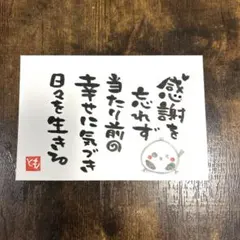 感謝を
忘れず
当たり前の
幸せに気づき
日々を生きる